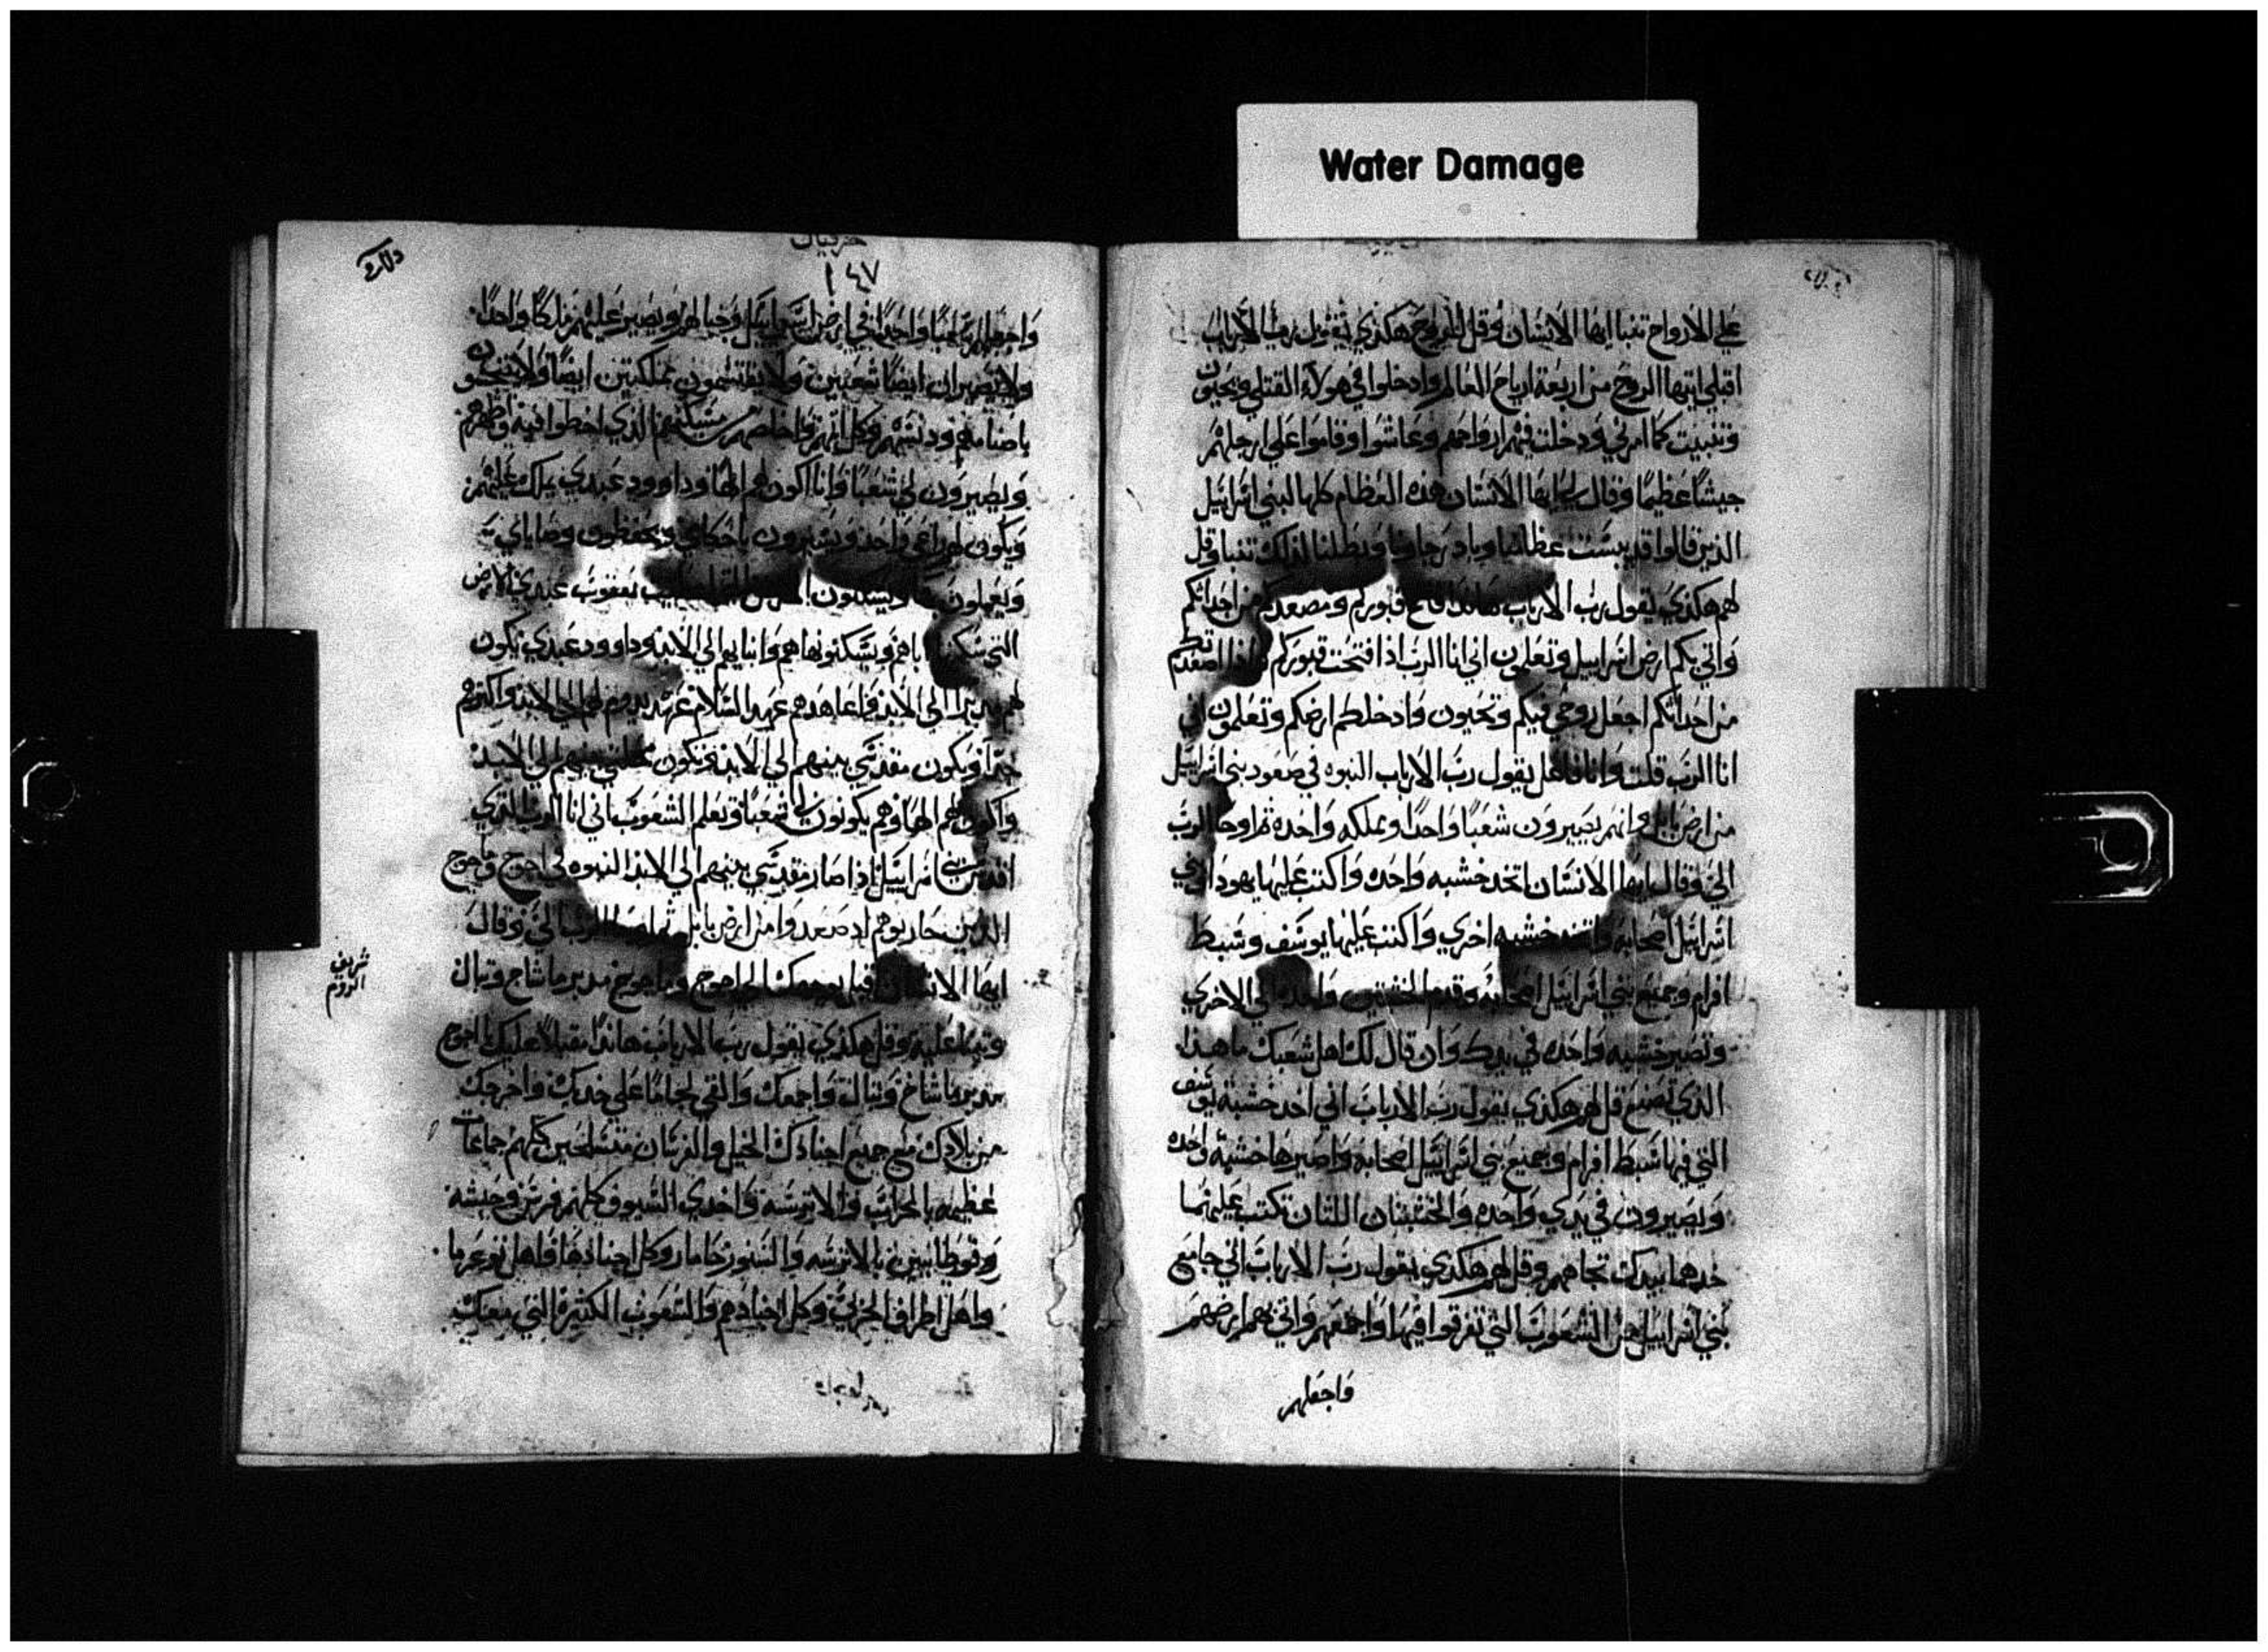 Water Damage
علي الارواح تنبا ايها الانسان وقل للروح هكذي يقول رب الارباب
اقبلي ايتها الروح من اربعة ارياح العالم وادخلوا في هولاء القتلي ويحيون
وتنبيت كما امرني ودخلت فيهم ارواحهم وعاشوا وقاموا علي ارجلهم
جيشا عظيما وقال لي ايها الانسان هذه العظام كلها لبني اسراييل
الذين قالوا قد يبست عظامنا وباد رجاونا وبطلنا لذلك تنبا وقل
لهم هكذي يقول رب الارباب هانذا فاتح قبوركم ومصعدكم من اجداثكم
واتي بكم ارض اسراييل وتعلمون اني انا الرب اذا فتحت قبوركم واذا اصعدتكم
من اجداثكم اجعل روحي فيكم وتحيون وادخلكم ارضكم وتعلمون اني
انا الرب قلت وانا فاعل يقول رب الارباب النبوه في صعود بني اسراييل
من ارض بابل وانهم يصيرون شعبا واحدا ومملكه واحده ثم اوحا الرب
الي وقال ايها الانسان اتخذ خشبه واحده واكتب عليها يهودا وبني
اسراييل اصحابه واتخذ خشبه اخري واكتب عليها يوسف وسبط
افرام وجميع بني اسراييل اصحابه وقدم الخشبتين واحده الي الاخري
وتصير خشبه واحده في يدك وان قال لك اهل شعبك ما هذا
الذي تصنع قل لهم هكذي يقول رب الارباب اني اخذ خشبة يوسف
التي فيها سبط افرام وجميع بني اسراييل اصحابه واصيرها خشبة واحده
ويصيرون في يدي واحده والخشبتان اللتان تكتب عليهما
خذهما بيدك تجاههم وقل لهم هكذي يقول رب الارباب اني جامع
بني اسراييل من الشعوب التي تفرقوا فيها واجمعهم واتي بهم ارضهم
فاجعلهم
حزقيال
١٤٧
واجعلهم شعبا واحدا في ارض اسراييل وجبالهم ويصير عليهم ملكا واحدا
ولا يصيران ايضا شعبين ولا يقتسمون مملكتين ايضا ولا يتنجسون
باصنامهم ودنسهم وكل اثمهم واخلصهم من مسكنهم الذي اخطوا فيه واطهرهم
ويصيرون لي شعبا وانا اكون لهم الها وداوود عبدي يملك عليهم
ويكون لهم راعي واحد ويسيرون باحكامي ويحفظون وصاياي
ويعملون بها ويسكنون الارض التي ليعقوب عبدي الارض
التي سكنها اباهم ويسكنونها هم وابنايهم الي الابد وداوود عبدي يكون
لهم مدبرا الي الابد واعاهدهم عهد السلام عهد يدوم لهم الي الابد واكثرهم
جدا ويكون مقدسي بينهم الي الابد وتكون محلتي بينهم الي الابد
واكون لهم الها وهم يكونون لي شعبا وتعلم الشعوب باني انا الرب الذي
اقدس بني اسراييل اذا صار مقدسي بينهم الي الابد النبوه في اجوج وماجوج
الذين حاربوهم اذ صعدوا من ارض بابل ثم اوحا الرب الي وقال
ايها الانسان اقبل بوجهك الي اجوج وماجوج مدبر ماشاج وتبال
شريف
الروم
وتنبا عليه وقل هكذي يقول رب الارباب هانذا مقبلا عليك اجوج
مدبر ماشاخ وتبال واجمعك والقي لجاما علي خدك واخرجك
من بلادك مع جميع اجنادك الخيل والفرسان متسلحين كلهم جامعات
عظيمه بالحراب والاترسه واخدي السيوف كلهم فرس وحبشه
وقوطا بالاترسه والسنور جامار وكل اجنادها واهل توغرما
واهل اطراف الجربي وكل اجنادهم والشعوب الكثيرة التي معك